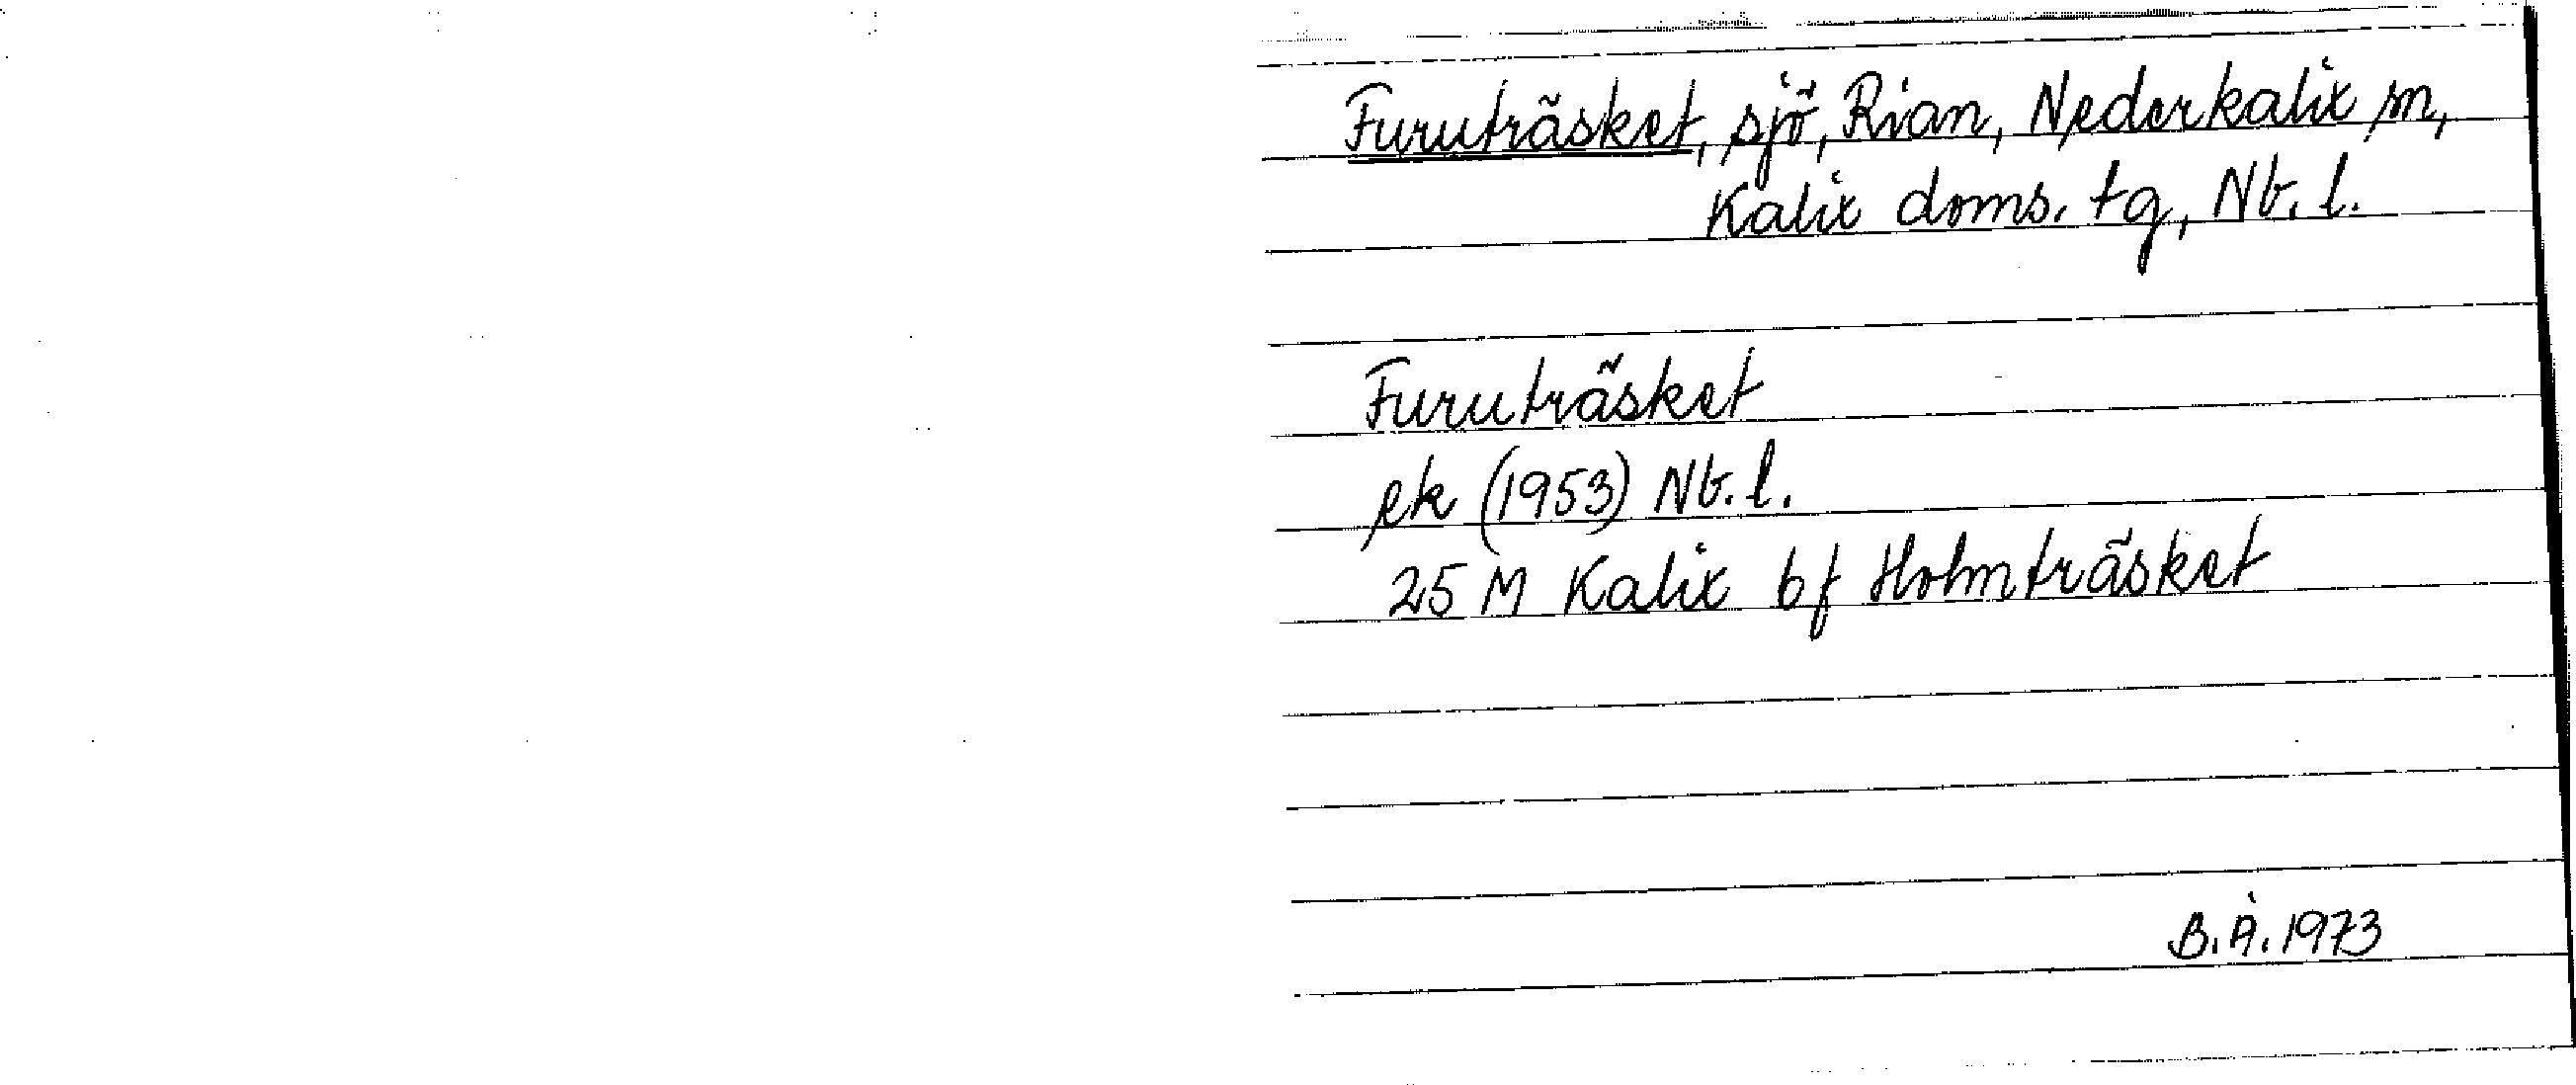 Furuträsket, sjö, Rian, Nederkalix sn,
Kalix doms. tg, Nb. l.
Furuträsket
ek (1953) Nb. l.
25 M Kalix bf Holmträsket
B.Å. 1973